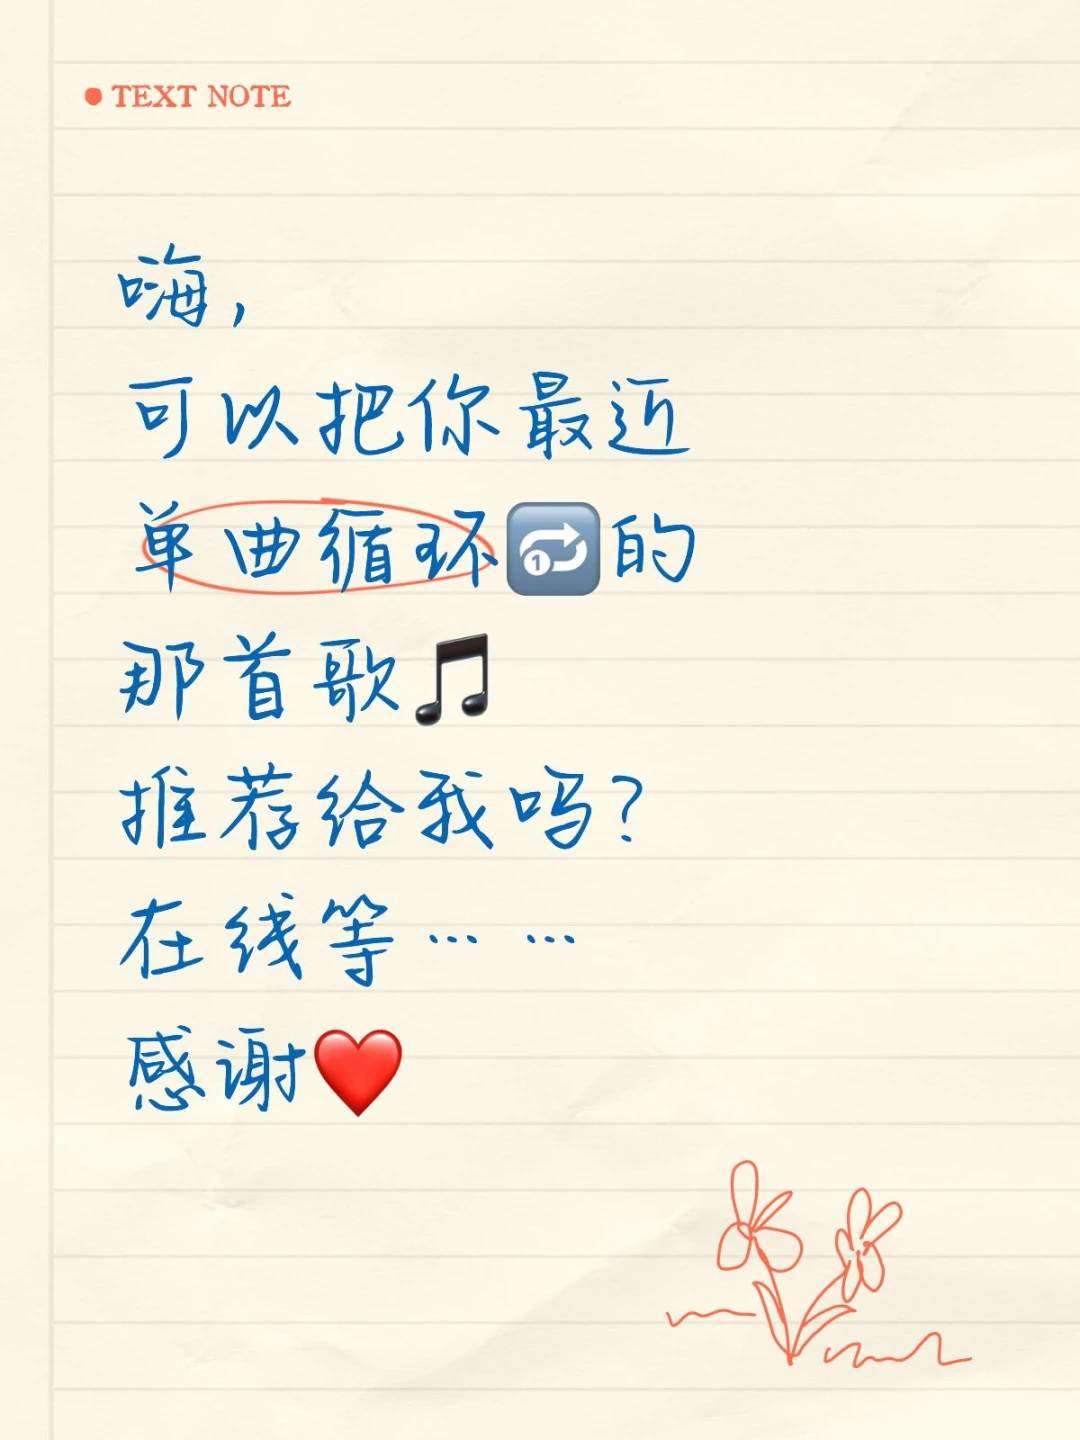 • TEXT NOTE
嗨，
可以把你最近
单曲循环🔂的
那首歌🎵
推荐给我吗？
在线等……
感谢❤️